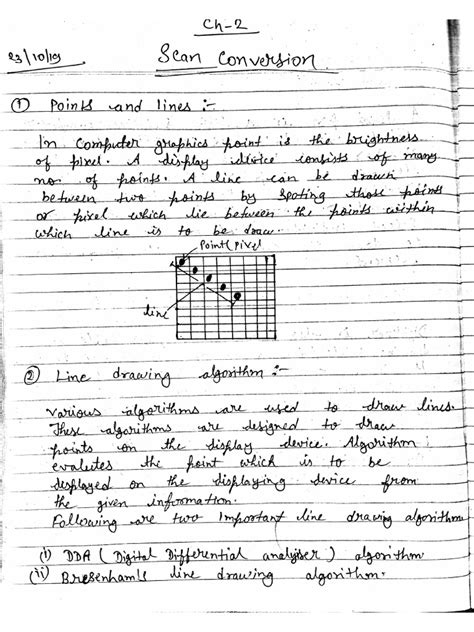 Ch-2
23/10/19
Scan Conversion
① Points and lines :-
In Computer graphics point is the brightness
of pixel. A display device consists of many
no. of points. A line can be drawn
between two points by spoting those points
or pixel which lie between the points within
which line is to be draw.
Point(pixel
line
② Line drawing algorithm :-
Various algorithms are used to draw lines.
These algorithms are designed to draw
points on the display device. Algorithm
evalutes the point which is to be
displayed on the displaying device from
the given information.
Following are two important line drawing algorithm
(i) DDA (Digital Differential analyiser) algorithm
(ii) Bresenham's line drawing algorithm.